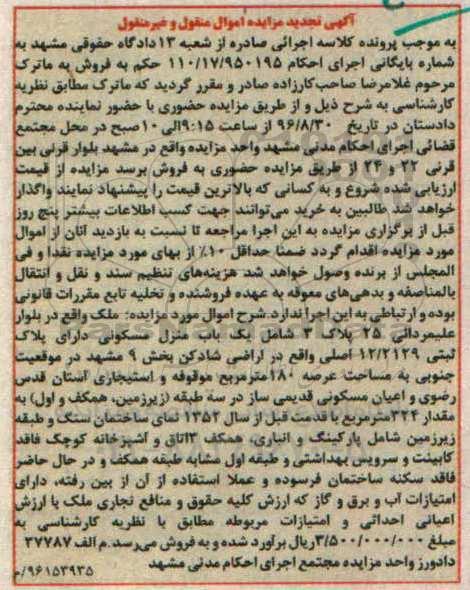 آگهی تجدید مزایده اموال منقول و غیرمنقول
به موجب پرونده کلاسه اجرائی صادره از شعبه ۱۳دادگاه حقوقی مشهد به
شماره بایگانی اجرای احکام ۱۱۰/۱۷/۹۵۰۱۹۵ حکم به فروش به ماترک
مرحوم غلامرضا صاحب‌کارزاده صادر و مقرر گردید که ماترک مطابق نظریه
کارشناسی به شرح ذیل و از طریق مزایده حضوری با حضور نماینده محترم
دادستان در تاریخ ۹۶/۸/۳۰ از ساعت ۹:۱۵الی ۱۰صبح در محل مجتمع
قضائی اجرای احکام مدنی مشهد واحد مزایده واقع در مشهد بلوار قرنی بین
قرنی ۲۲ و ۲۴ از طریق مزایده حضوری به فروش برسد مزایده از قیمت
ارزیابی شده شروع و به کسانی که بالاترین قیمت را پیشنهاد نمایند واگذار
خواهد شد طالبین به خرید می‌توانند جهت کسب اطلاعات بیشتر پنج روز
قبل از برگزاری مزایده به این اجرا مراجعه تا نسبت به بازدید آنان از اموال
مورد مزایده اقدام گردد ضمنا حداقل ۱۰٪ از بهای مورد مزایده نقدا و فی
المجلس از برنده وصول خواهد شد هزینه‌های تنظیم سند و نقل و انتقال
بالمناصفه و بدهی‌های معوقه به عهده فروشنده و تخلیه تابع مقررات قانونی
بوده و ارتباطی به این اجرا ندارد.شرح اموال مورد مزایده: ملک واقع در بلوار
علیمردانی ۲۵ پلاک ۲ شامل یک باب منزل مسکونی دارای پلاک
ثبتی ۱۲/۲۱۲۹ اصلی واقع در اراضی شادکن بخش ۹ مشهد در موقعیت
جنوبی به مساحت عرصه ۱۸۰مترمربع موقوفه و استیجاری آستان قدس
رضوی و اعیان مسکونی قدیمی ساز در سه طبقه (زیرزمین، همکف و اول) به
مقدار ۳۲۴مترمربع با قدمت قبل از سال ۱۳۵۲ نمای ساختمان سنگ و طبقه
زیرزمین شامل پارکینگ و انباری، همکف ۳اتاق و آشپزخانه کوچک فاقد
کابینت و سرویس بهداشتی و طبقه اول مشابه طبقه همکف و در حال حاضر
فاقد سکنه ساختمان فرسوده و عملا استفاده از آن از بین رفته، دارای
امتیازات آب و برق و گاز که ارزش کلیه حقوق و منافع تجاری ملک با ارزش
اعیانی احداثی و امتیازات مربوطه مطابق با نظریه کارشناسی به
مبلغ ۳/۵۰۰/۰۰۰/۰۰۰ریال برآورد شده و به فروش می‌رسد.م الف ۲۷۷۸۷
دادورز واحد مزایده مجتمع اجرای احکام مدنی مشهد
۹۶۱۵۳۹۳۵/م